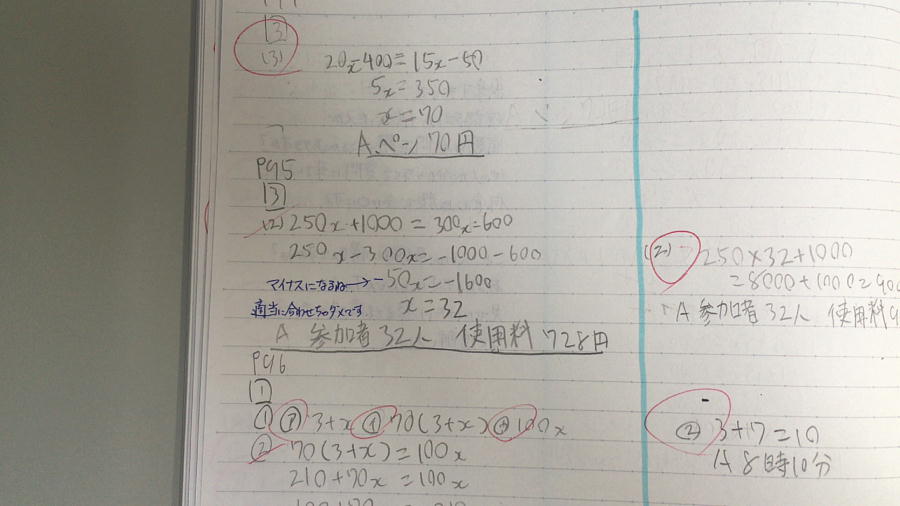 [3]
(3) 20x-400=15x-50
5x=350
x=70
A.ペン 70円
P95
[3]
(2) 250x+1000=300x-600
250x-300x=-1000-600
マイナスになるね→ -50x=-1600
適当に合わせちゃダメです x=32
A 参加者32人 使用料728円
P96
[1]
① ㋐ 3+x ㋑ 70(3+x) ㋒ 100x
② 70(3+x)=100x
210+70x=100x
(2) 250×32+1000
=8000+1000=900
A 参加者32人 使用料9
② 3+7=10
A 8時10分